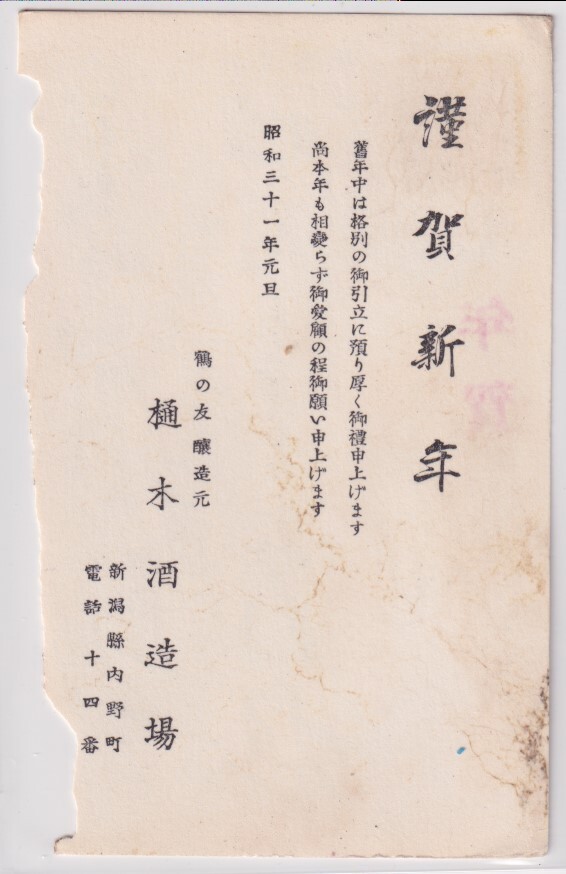 謹賀新年
舊年中は格別の御引立に預り厚く御禮申上げます
尚本年も相變らず御愛顧の程御願い申上げます
昭和三十一年元旦
鶴の友 醸造元
樋木酒造場
新潟縣内野町
電話十四番
年賀